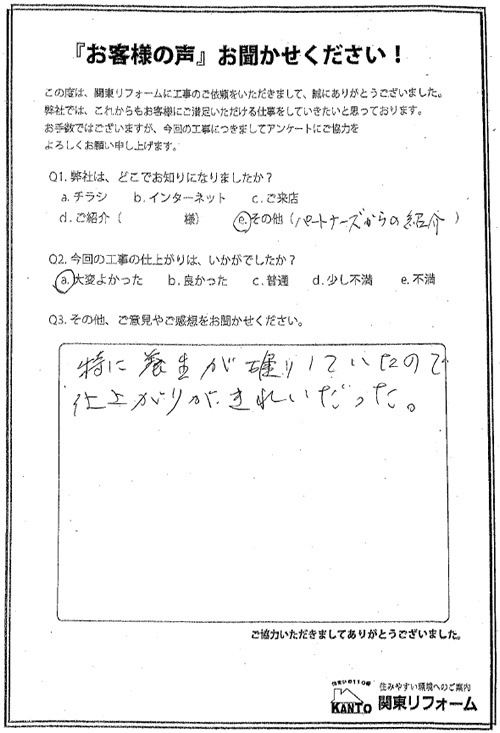 『お客様の声』お聞かせください！
この度は、関東リフォームに工事のご依頼をいただきまして、誠にありがとうございました。
弊社では、これからもお客様にご満足いただける仕事をしていきたいと思っております。
お手数ではございますが、今回の工事につきましてアンケートにご協力を
よろしくお願い申し上げます。
Q1. 弊社は、どこでお知りになりましたか？
a. チラシ b. インターネット c. ご来店
d. ご紹介（ 様） e. その他（パートナーズからの紹介）
Q2. 今回の工事の仕上がりは、いかがでしたか？
a. 大変よかった b. 良かった c. 普通 d. 少し不満 e. 不満
Q3. その他、ご意見やご感想をお聞かせください。
特に養生が確りしていたので
仕上がりがきれいだった。
ご協力いただきましてありがとうございました。
住まいの110番
KANTO
住みやすい環境へのご案内
関東リフォーム